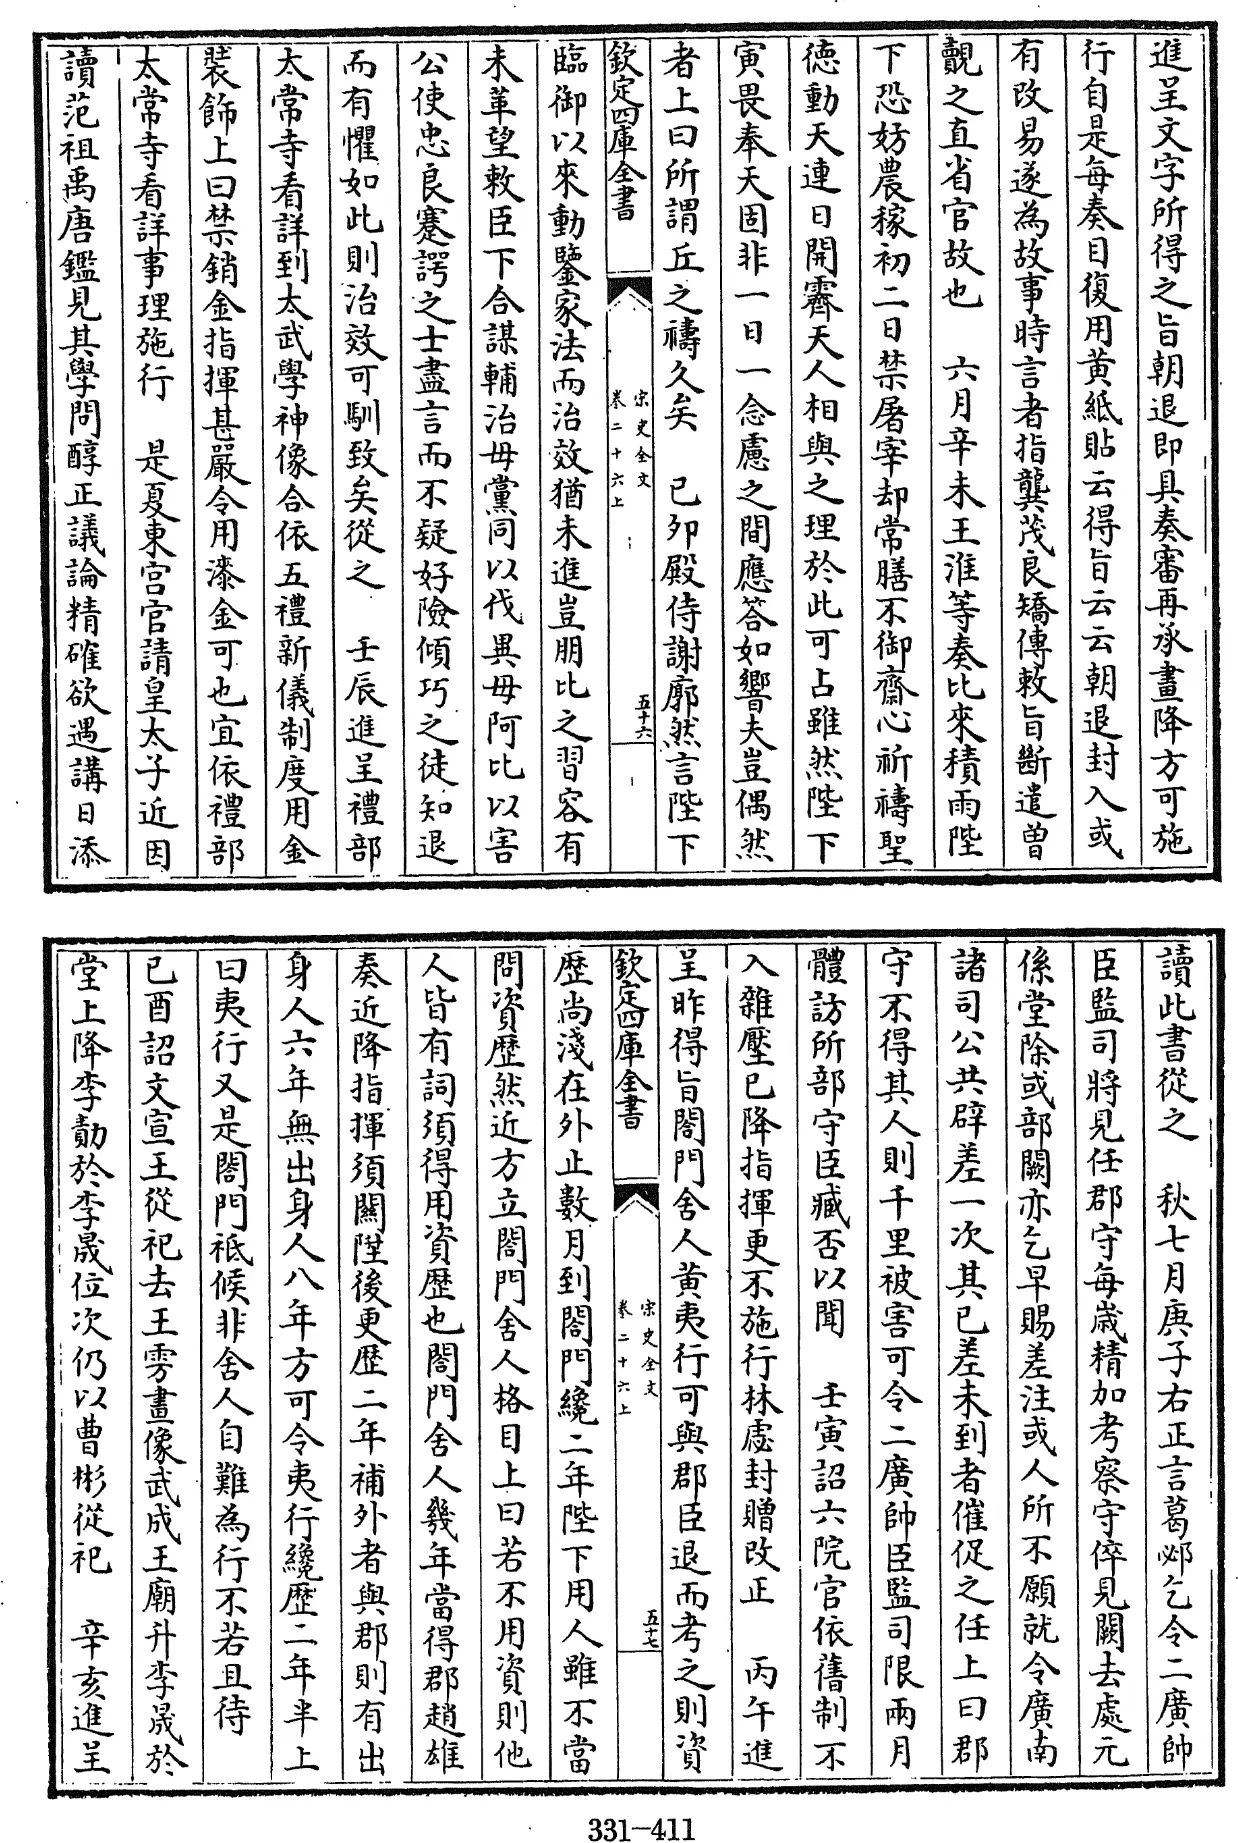 進呈文字所得之旨朝退即具奏審再承畫降方可施
行自是每奏目復用黄紙貼云得旨云云朝退封入或
有改易遂為故事時言者指龔茂良矯傳敕旨斷遣曽
覿之直省官故也　六月辛未王淮等奏比來積雨陛
下恐妨農稼初二日禁屠宰却常膳不御齋心祈禱聖
德動天連日開霽天人相與之理於此可占雖然陛下
寅畏奉天固非一日一念慮之間應答如響夫豈偶然
者上曰所謂丘之禱久矣　己夘殿侍謝廓然言陛下
欽定四庫全書
宋史全文
卷二十六上
五十六
臨御以來動鑒家法而治效猶未進豈朋比之習容有
未革望敕臣下合謀輔治毋黨同以伐異毋阿比以害
公使忠良蹇諤之士盡言而不疑好險傾巧之徒知退
而有懼如此則治效可馴致矣從之　壬辰進呈禮部
太常寺看詳到太武學神像合依五禮新儀制度用金
裝飾上曰禁銷金指揮甚嚴令用漆金可也宜依禮部
太常寺看詳事理施行　是夏東宫官請皇太子近因
讀范祖禹唐鑑見其學問醇正議論精確欲遇講日添
讀此書從之　秋七月庚子右正言葛邲乞令二廣帥
臣監司將見任郡守每歲精加考察守倅見闕去處元
係堂除或部闕亦乞早賜差注或人所不願就令廣南
諸司公共辟差一次其已差未到者催促之任上曰郡
守不得其人則千里被害可令二廣帥臣監司限兩月
體訪所部守臣臧否以聞　壬寅詔六院官依舊制不
入雜壓已降指揮更不施行林慮封贈改正　丙午進
呈昨得旨閤門舍人黄夷行可與郡臣退而考之則資
欽定四庫全書
宋史全文
卷二十六上
五十七
歴尚淺在外止數月到閤門纔二年陛下用人雖不當
問資歴然近方立閤門舍人格目上曰若不用資則他
人皆有詞須得用資歴也閤門舍人幾年當得郡趙雄
奏近降指揮須關陞後更歴二年補外者與郡則有出
身人六年無出身人八年方可令夷行纔歴二年半上
曰夷行又是閤門祗候非舍人自難為行不若且待
已酉詔文宣王從祀去王雱畫像武成王廟升李晟於
堂上降李勣於李晟位次仍以曹彬從祀　辛亥進呈
331—411